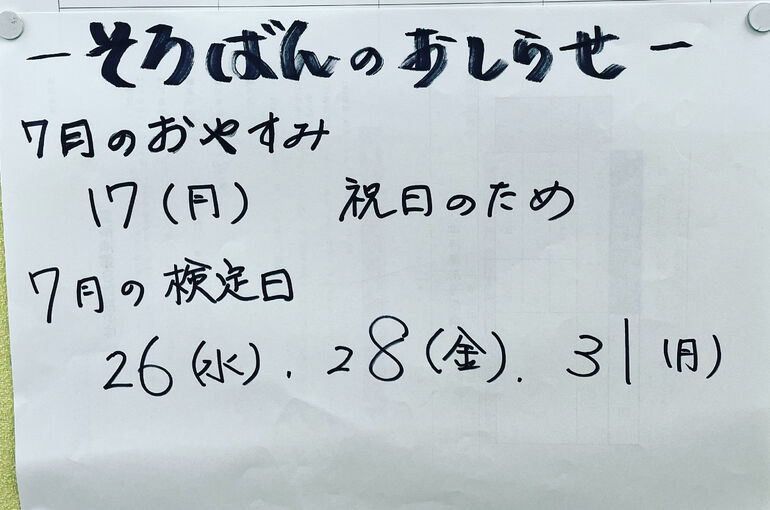 －そろばんのおしらせ－
7月のおやすみ
17(月) 祝日のため
7月の検定日
26(水). 28(金). 31(月)